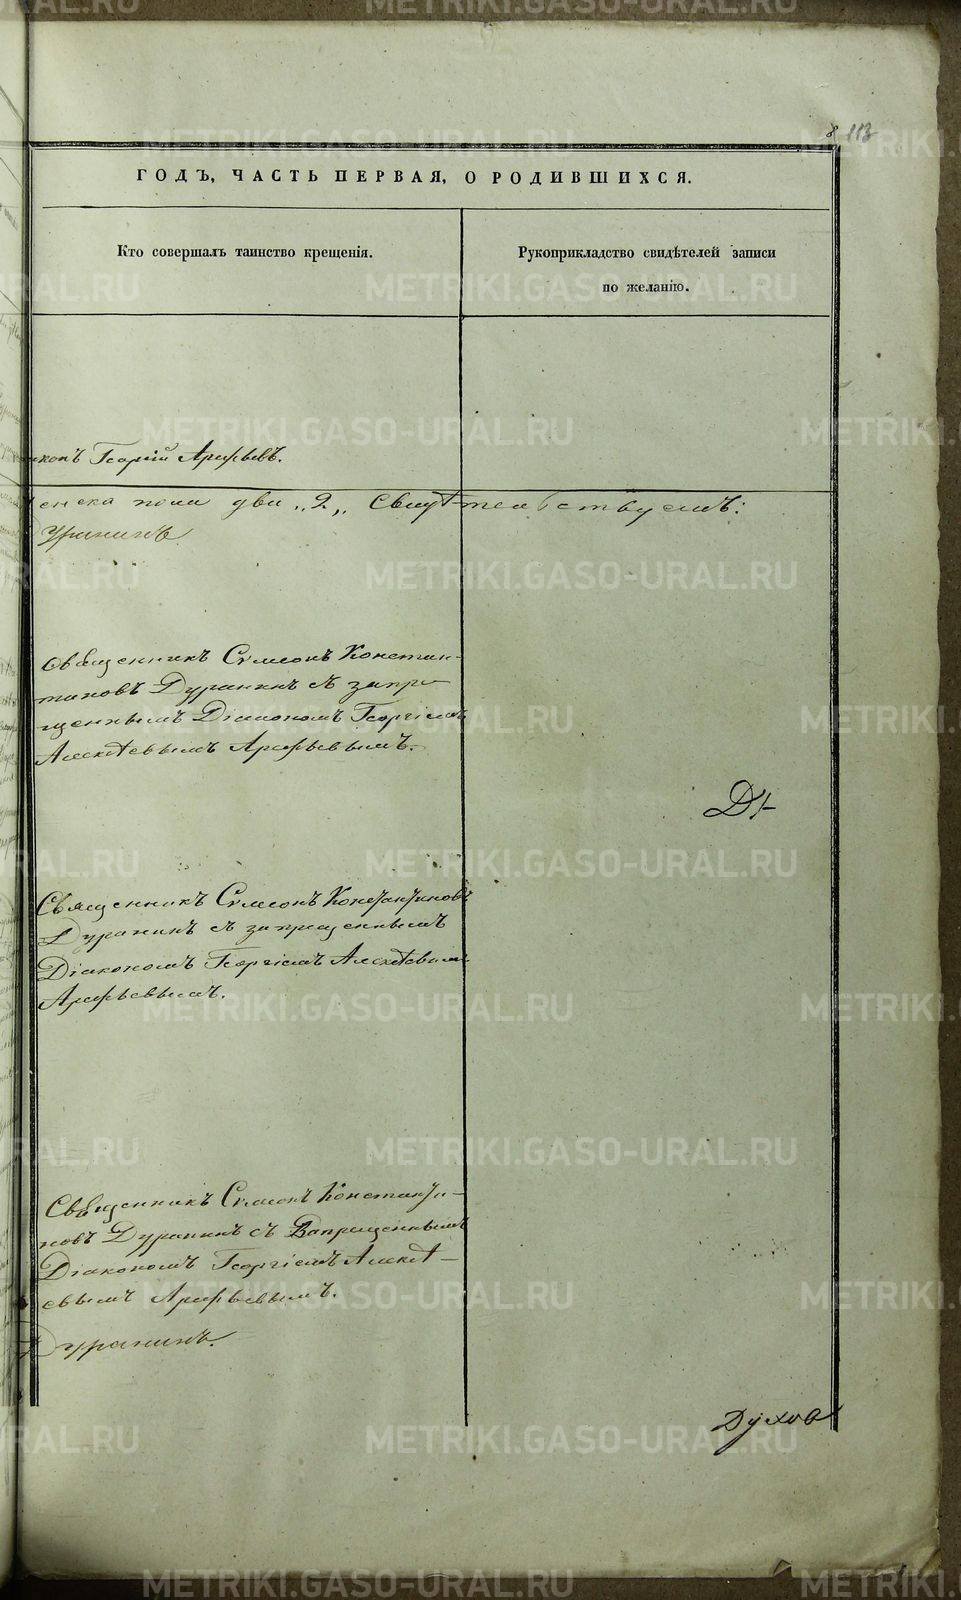 8 113
ГОДЪ, ЧАСТЬ ПЕРВАЯ, О РОДИВШИХСЯ.
Кто совершалъ таинство крещенія.
Рукоприкладство свидѣтелей записи
по желанію.
Георгій Арефьевъ.
пола два „2„ свидѣтельствуемъ:
Дуранинъ
Священникъ Симеонъ Констан-
тиновъ Дуранинъ съ запре-
щеннымъ Діакономъ Георгіемъ
Алексѣевымъ Арефьевымъ.
Священникъ Симеонъ Константиновъ
Дуранинъ съ запрещеннымъ
Діакономъ Георгіемъ Алексѣевымъ
Арефьевымъ.
Священникъ Симеонъ Константи-
новъ Дуранинъ съ Запрещеннымъ
Діакономъ Георгіемъ Алексѣ-
евымъ Арефьевымъ.
Дуранинъ.
Духов
METRIKI.GASO-URAL.RU